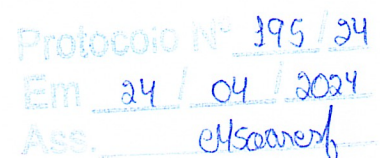 Protocolo Nº 195/24
Em 24 / 04 / 2024
Ass.